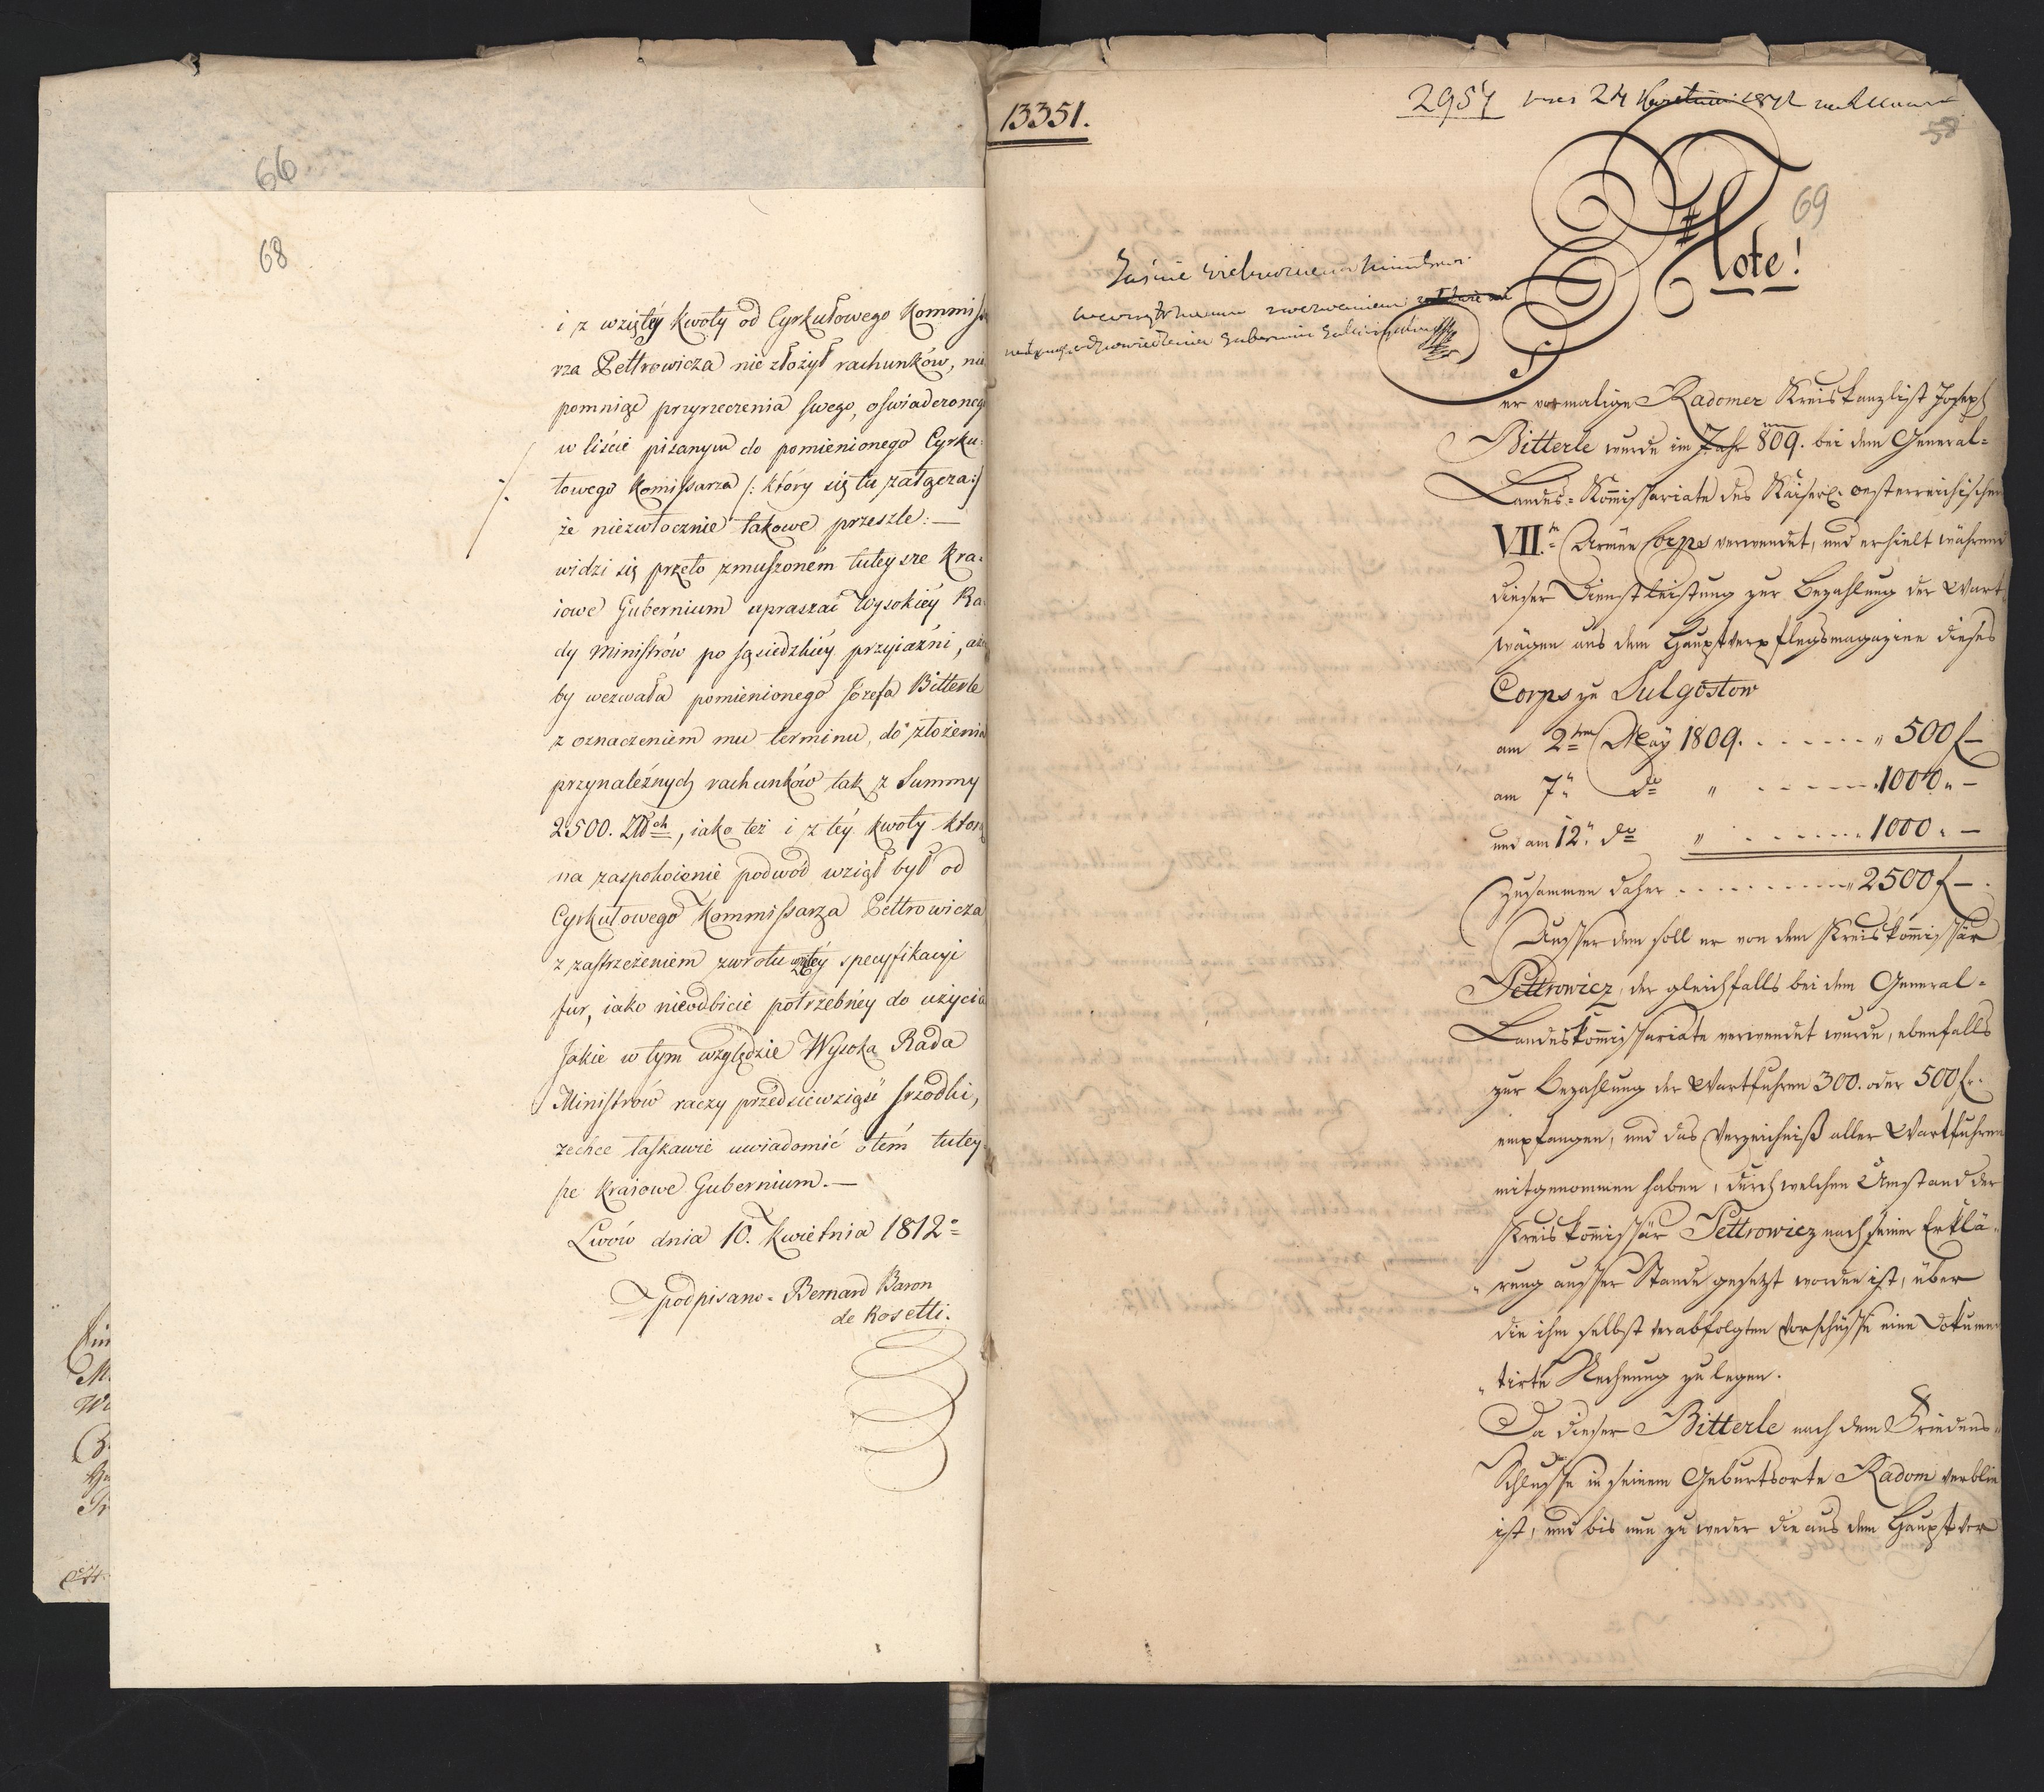 66
68
i z wziętéy kwoty od Cyrkułowego Kommissa
rza Pettrowicza nie złożył rachunków, nie
pomniąc przyrzeczenia swego, oświadczonego
w liście pisanym do pomienionego Cyrku-
łowego Komissarza /: który się tu załącza :/
że niezwłocznie takowe prześle: —
widzi się przeto zmuszoném tuteysze Kra-
iowe Gubernium upraszać Wysokiéy Ra-
dy Ministrów po sąsiedzkiéy przyiaźni, aże
by wezwała pomienionego Józefa Bitterle
z oznaczeniem mu terminu, do złożenia
przynależnych rachunków tak z Summy
2500. ZłRch, iako też i z téy kwoty którą
na zaspokoienie podwód wziął był od
Cyrkułowego Kommissarza Pettrowicza
z zastrzeżeniem zwrotu wziętéy specyfikacyi
fur, iako nieodbicie potrzebnéy do użycia
Jakie w tym względzie Wysoka Rada
Ministrów raczy przedsiewziąść srzodki,
zechce łaskawie uwiadomić o tém tutey-
sze kraiowe Gubernium. —
Lwów dnia 10. Kwietnia 1812
podpisano - Bernard Baron
de Rosetti.
13351.
2957 24
58
69
Note!
Jaśnie
Der vormalige Radomer Kreiskanzlist Joseph
Bitterle wurde im Jahr 809. bei dem General-
Landes-Kommissariate des Kaiserl. oesterreichischen
VII.n Armee Corps verwendet, und erhielt während
dieser Dienstleistung zur Bezahlung der Wart
wägen aus dem Hauptverpflegsmagazine dieses
Corps zu Sulgostow
am 2ten May 1809. . . . . . . " 500 f —
am 7n do " - - - - - 1000 " —
und am 12n do " . . . . . . . 1000 " —
zusammen daher . . . . . . . . . . " 2500 f — .
Ausser dem soll er von dem Kreiskommissär
Pettrowicz, der gleichfalls bei dem General-
Landeskommissariate verwendet wurde, ebenfalls
zur Bezahlung der Wartfuhren 300. oder 500 f.
empfangen, und das Verzeichniß aller Wartfuhren
mitgenommen haben, durch welchen Umstand der
Kreiskommissär Pettrowicz nach seiner Erklä-
rung ausser Stande gesetzt worden ist, über
die ihm selbst verabfolgten Vorschüsse eine Dokumen
tirte Rechnung zu legen.
Da dieser Bitterle nach dem Friedens-
Schlusse in seinem Geburtsorte Radom verblie
ist, und bis nun zu weder die aus dem Hauptver